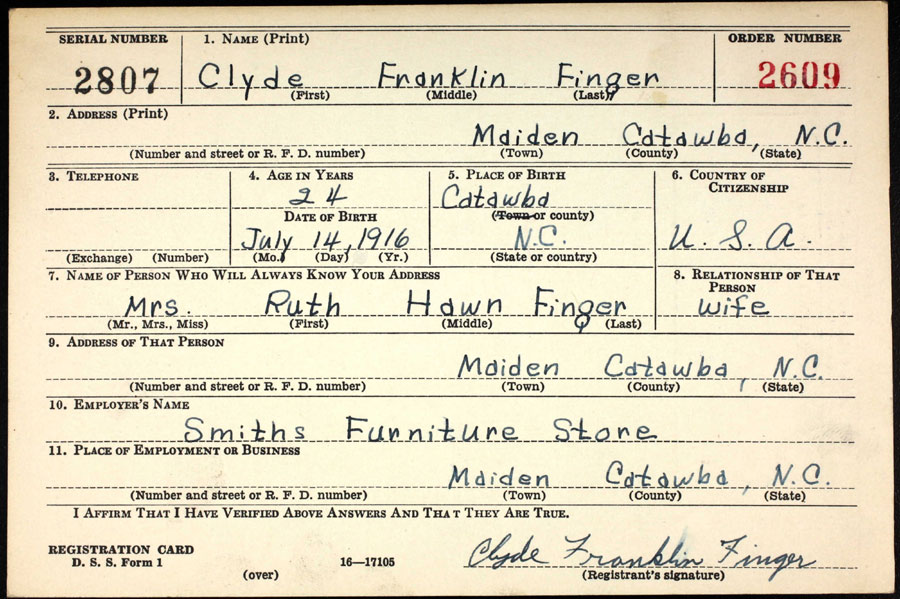 SERIAL NUMBER 1. NAME (Print) ORDER NUMBER
2807 Clyde Franklin Finger 2609
(First) (Middle) (Last)
2. ADDRESS (Print)
Maiden Catawba, N.C.
(Number and street or R. F. D. number) (Town) (County) (State)
3. TELEPHONE 4. AGE IN YEARS 5. PLACE OF BIRTH 6. COUNTRY OF CITIZENSHIP
24 Catawba
DATE OF BIRTH (Town or county)
July 14, 1916 N.C. U. S. A.
(Exchange) (Number) (Mo.) (Day) (Yr.) (State or country)
7. NAME OF PERSON WHO WILL ALWAYS KNOW YOUR ADDRESS 8. RELATIONSHIP OF THAT PERSON
Mrs. Ruth Hawn Finger wife
(Mr., Mrs., Miss) (First) (Middle) (Last)
9. ADDRESS OF THAT PERSON
Maiden Catawba, N.C.
(Number and street or R. F. D. number) (Town) (County) (State)
10. EMPLOYER'S NAME
Smiths Furniture Store
11. PLACE OF EMPLOYMENT OR BUSINESS
Maiden Catawba, N.C.
(Number and street or R. F. D. number) (Town) (County) (State)
I AFFIRM THAT I HAVE VERIFIED ABOVE ANSWERS AND THAT THEY ARE TRUE.
REGISTRATION CARD Clyde Franklin Finger
D. S. S. Form 1 16—17105
(over) (Registrant's signature)